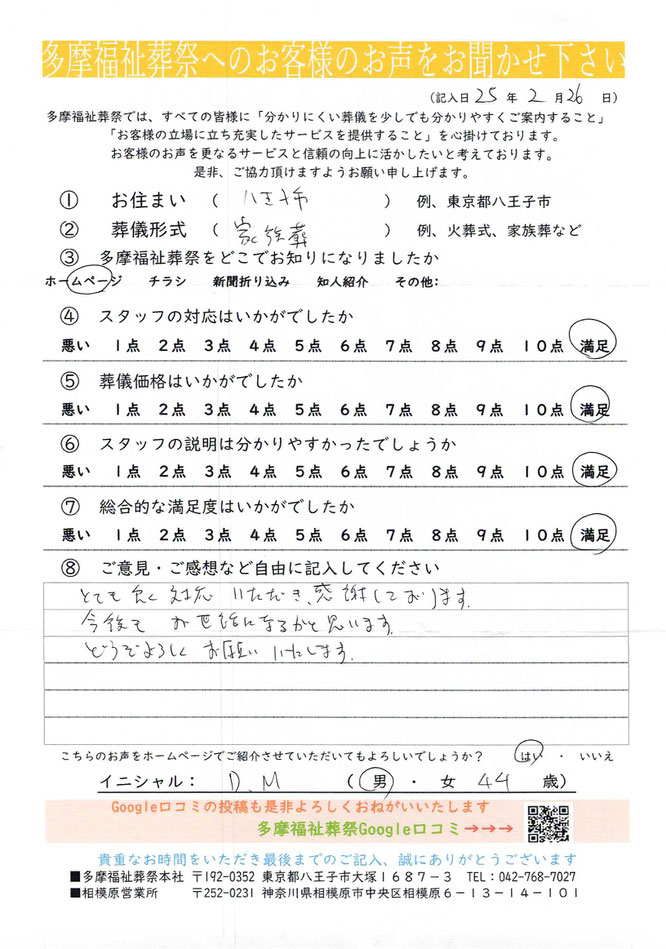 多摩福祉葬祭へのお客様のお声をお聞かせ下さい
(記入日 25 年 2 月 26 日)
多摩福祉葬祭では、すべての皆様に「分かりにくい葬儀を少しでも分かりやすくご案内すること」
「お客様の立場に立ち充実したサービスを提供すること」を心掛けております。
お客様のお声を更なるサービスと信頼の向上に活かしたいと考えております。
是非、ご協力頂けますようお願い申し上げます。
① お住まい ( 八王子市 ) 例、東京都八王子市
② 葬儀形式 ( 家族葬 ) 例、火葬式、家族葬など
③ 多摩福祉葬祭をどこでお知りになりましたか
ホームページ チラシ 新聞折り込み 知人紹介 その他:
④ スタッフの対応はいかがでしたか
悪い 1点 2点 3点 4点 5点 6点 7点 8点 9点 10点 満足
⑤ 葬儀価格はいかがでしたか
悪い 1点 2点 3点 4点 5点 6点 7点 8点 9点 10点 満足
⑥ スタッフの説明は分かりやすかったでしょうか
悪い 1点 2点 3点 4点 5点 6点 7点 8点 9点 10点 満足
⑦ 総合的な満足度はいかがでしたか
悪い 1点 2点 3点 4点 5点 6点 7点 8点 9点 10点 満足
⑧ ご意見・ご感想など自由に記入してください
とても良く対応いただき、感謝しております。
今後もお世話になるかと思います。
どうぞよろしくお願いいたします。
こちらのお声をホームページでご紹介させていただいてもよろしいでしょうか? はい ・ いいえ
イニシャル: D.M (男 ・ 女 44 歳)
Google口コミの投稿も是非よろしくおねがいいたします
多摩福祉葬祭Google口コミ→→→
貴重なお時間をいただき最後までのご記入、誠にありがとうございます
■多摩福祉葬祭本社 〒192-0352 東京都八王子市大塚1687-3 TEL:042-768-7027
■相模原営業所 〒252-0231 神奈川県相模原市中央区相模原6-13-14-101